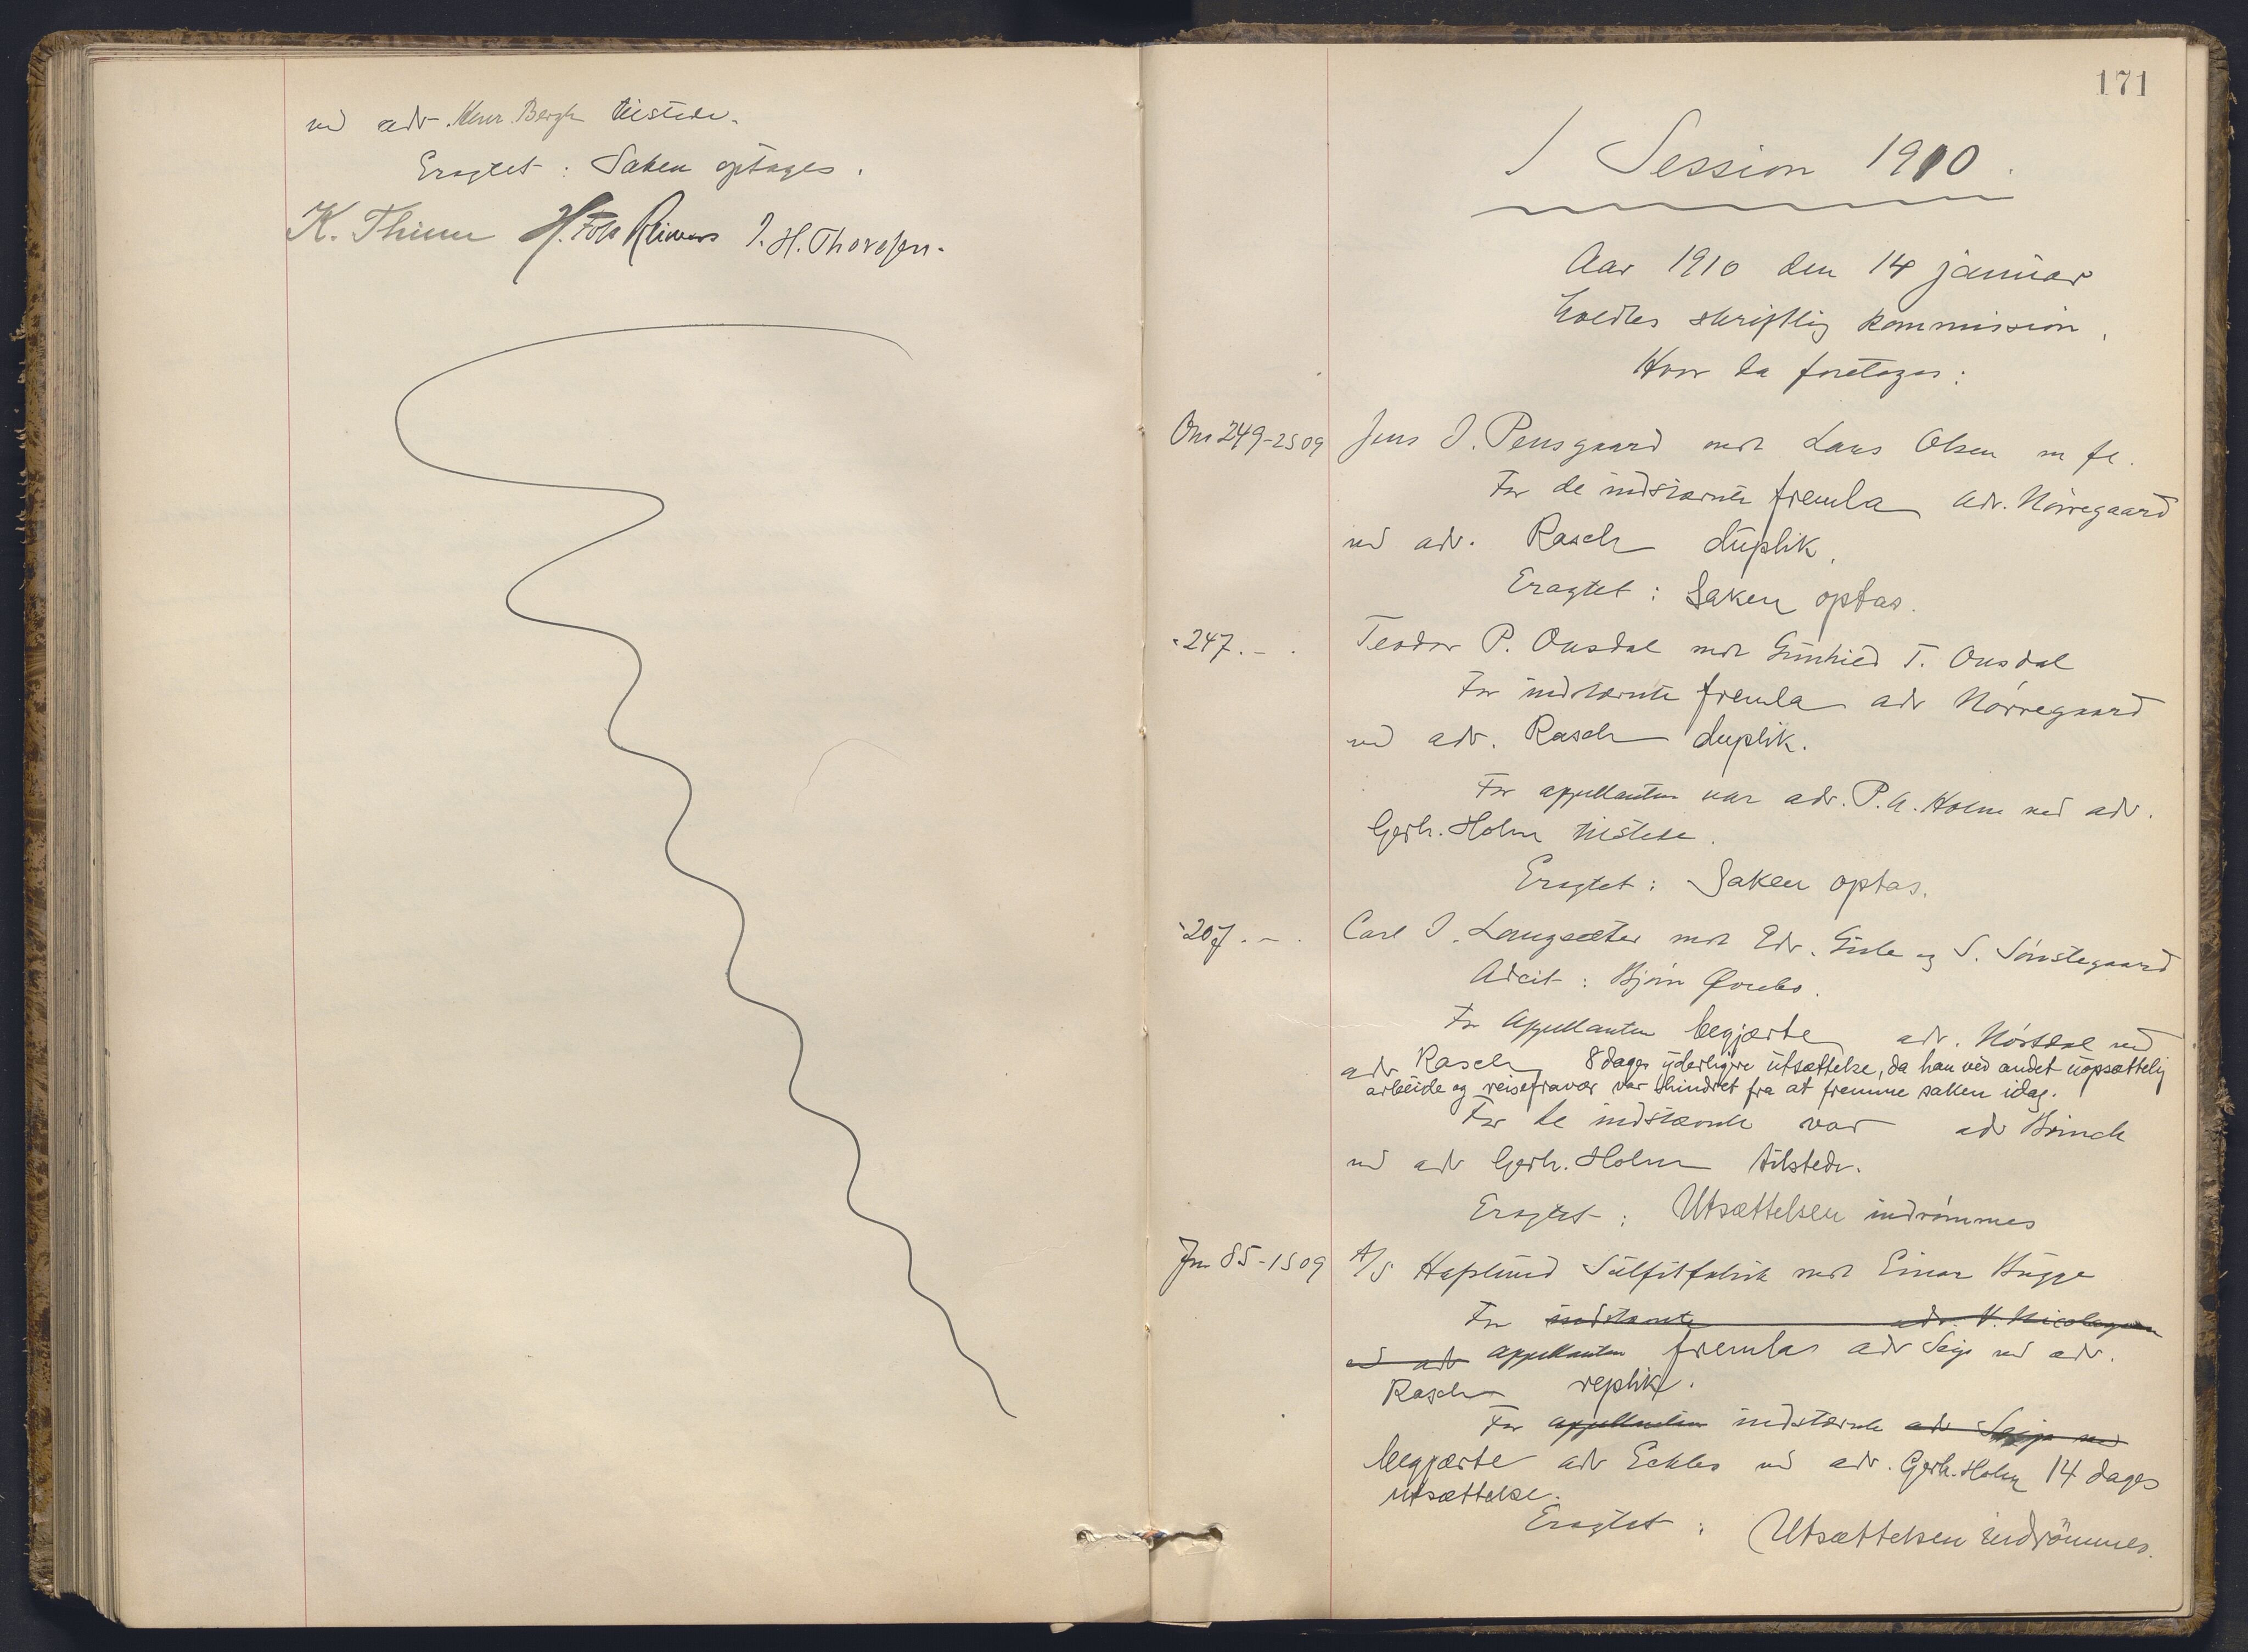 ved adv. Herm. Bergh tilstede.
Eragtet: Saken optages.
K. Thinn H. Foss Reimers J. H. Thoresen.
171
I Session 1910.
Aar 1910 den 14 januar
holdtes skriftlig kommission,
Hvor da foretages:
Om 249-2S09 Jens I. Pensgaard mot Lars Olsen m fl.
For de indstævnte fremla adv. Nörregaard
ved adv. Rasch duplik.
Eragtet: Saken optas.
" 247. - . Teodor P. Ousdal mot Gunhild T. Ousdal
For indstævnte fremla adv Nörregaard
ved adv. Rasch duplik.
For appellanten var adv. P. A. Holm ved adv.
Gerh. Holm tilstede.
Eragtet: Saken optas.
" 207. - . Carl I. Langsæter mot Edv. og S. Sönstegaard
Adcit: Björn
For Appellanten begjærte adv. ved
adv Rasch 8 dages yderligere utsættelse, da han ved andet uopsættelig
arbeide og reisefravær var hindret fra at fremme saken idag.
For de indstævnte var adv Brinch
ved adv Gerh. Holm tilstede.
Eragtet: Utsættelsen indrömmes
Jm 85-1S09 A/S Haflund Sulfitfabrik mot Einar Bugge
For indstævnte adv. V. Nicolaysen
ved adv appellanten fremla adv Seip ved adv.
Rasch replik.
For appellanten indstævnte adv Seip ved
begjærte adv Eckbo ved adv. Gerh. Holm 14 dages
utsættelse.
Eragtet: Utsættelsen indrömmes.